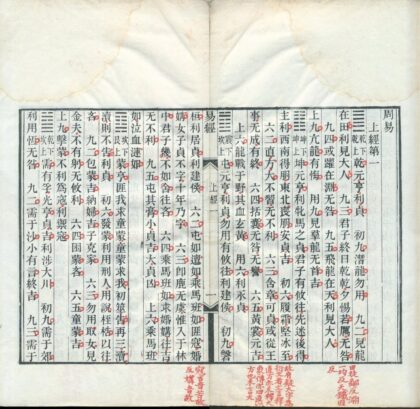 周易
上經第一
䷀乾下乾上 乾元亨利貞 初九潛龍勿用 九二見龍
在田利見大人 九三君子終日乾乾夕惕若厲无咎
九四或躍在淵无咎 九五飛龍在天利見大人
上九亢龍有悔 用九見羣龍无首吉
䷁坤下坤上 坤元亨利牝馬之貞君子有攸往先迷後得
主利西南得朋東北喪朋安貞吉 初六履霜堅冰至
六二直方大不習无不利 六三含章可貞或從王
事无成有終 六四括囊无咎无譽 六五黃裳元吉
上六龍戰于野其血玄黃 用六利永貞
䷂震下坎上 屯元亨利貞勿用有攸往利建侯 初九磐
易經 上經 一
桓利居貞利建侯 六二屯如邅如乘馬班如匪寇婚
媾女子貞不字十年乃字 六三即鹿无虞惟入于林
中君子幾不如舍往吝 六四乘馬班如求婚媾往吉
无不利 九五屯其膏小貞吉大貞凶 上六乘馬班
如泣血漣如
䷃坎下艮上 蒙亨匪我求童蒙童蒙求我初筮告再三瀆
瀆則不告利貞 初六發蒙利用刑人用說桎梏以往
吝 九二包蒙吉納婦吉子克家 六三勿用取女見
金夫不有躬无攸利 六四困蒙吝 六五童蒙吉
上九擊蒙不利爲寇利禦寇
䷄乾下坎上 需有孚光亨貞吉利涉大川 初九需于郊
利用恒无咎 九二需于沙小有言終吉 九三需于